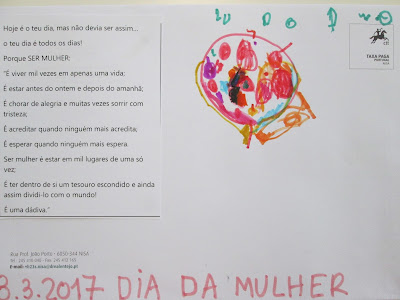 Hoje é o teu dia, mas não devia ser assim...
o teu dia é todos os dias!
Porque SER MULHER:
"É viver mil vezes em apenas uma vida;
É estar antes do ontem e depois do amanhã;
É chorar de alegria e muitas vezes sorrir com
tristeza;
É acreditar quando ninguém mais acredita;
É esperar quando ninguém mais espera.
Ser mulher é estar em mil lugares de uma só
vez;
É ter dentro de si um tesouro escondido e ainda
assim dividi-lo com o mundo!
É uma dádiva."
ctt
TAXA PAGA
PORTUGAL
NISA
8.3.2017 DIA DA MULHER